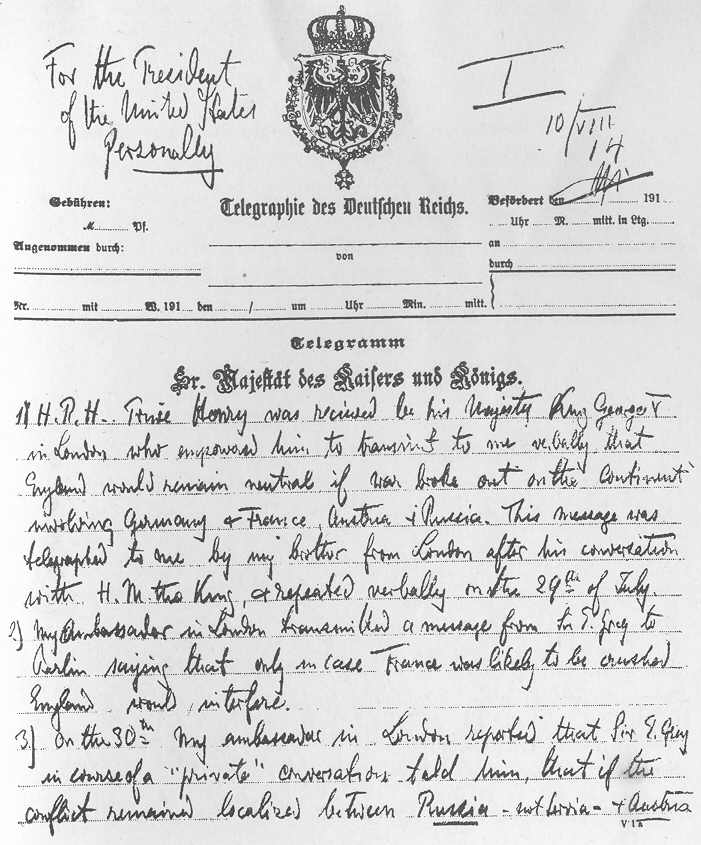 For the President
of the United States
Personally
I
10/VIII
14
Gebühren:
M. Pf.
Angenommen durch:
Telegraphie des Deutschen Reichs.
von
Befördert den 191
Uhr M. mitt. in Ltg.
an
durch
Nr. mit W. 191 den / um Uhr Min. mitt.
Telegramm
Sr. Majestät des Kaisers und Königs.
1) H.R.H. Prince Henry was recieved be his Majesty King George V
in London who empowered him to transmit to me verbally that
England would remain neutral if war broke out on the Continent
involving Germany & France, Austria & Russia. This message was
telegraphed to me by my brother from London after his conversation
with H.M. the King, & repeated verbally on the 29th of July
2) My Ambassador in London transmitted a message from Sir E. Grey to
Berlin saying that only in case France was likely to be crushed
England would interfere.
3.) On the 30th my ambassador in London reported that Sir E. Grey
in course of a "private" conversation told him, that if the
conflict remained localized between Russia - not Servia - & Austria